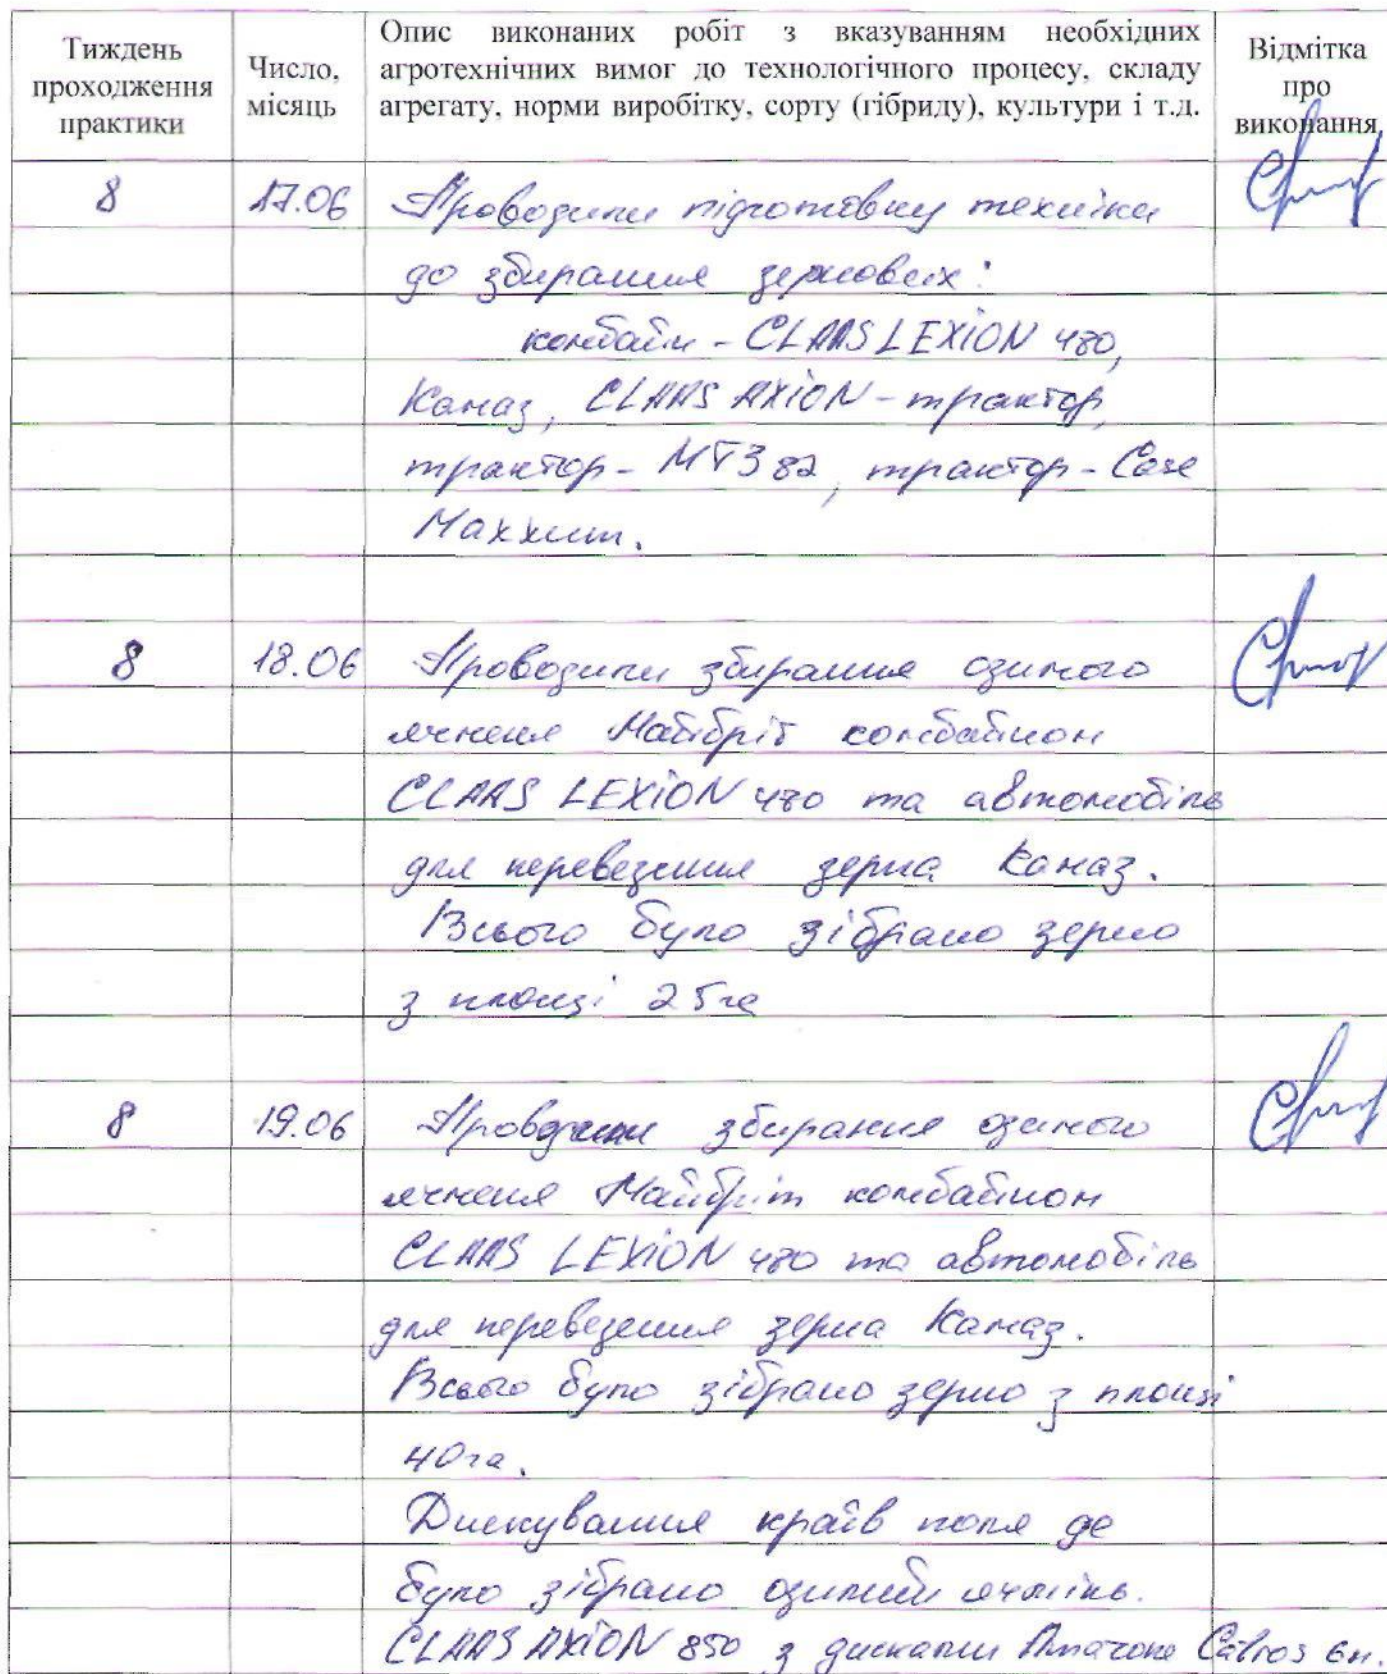 Тиждень проходження практики
Число, місяць
Опис виконаних робіт з вказуванням необхідних
агротехнічних вимог до технологічного процесу, складу
агрегату, норми виробітку, сорту (гібриду), культури і т.д.
Відмітка про виконання
8 17.06 Проводили підготовку техніки
до збирання зернових:
комбайн - CLAAS LEXION 480,
Камаз, CLAAS AXION - трактор,
трактор - МТЗ 82, трактор - Case
Maxxum.
8 18.06 Проводили збирання озимого
ячменя Майбріт комбайном
CLAAS LEXION 480 та автомобіль
для перевезення зерна Камаз.
Всього було зібрано зерно
з площі 25га
8 19.06 Проводили збирання озимого
ячменя Майбріт комбайном
CLAAS LEXION 480 та автомобіль
для перевезення зерна Камаз.
Всього було зібрано зерно з площі
40га.
Дискування країв поля де
було зібрано озимий ячмінь.
CLAAS AXION 850 з дисками Amazone Catros 6м.